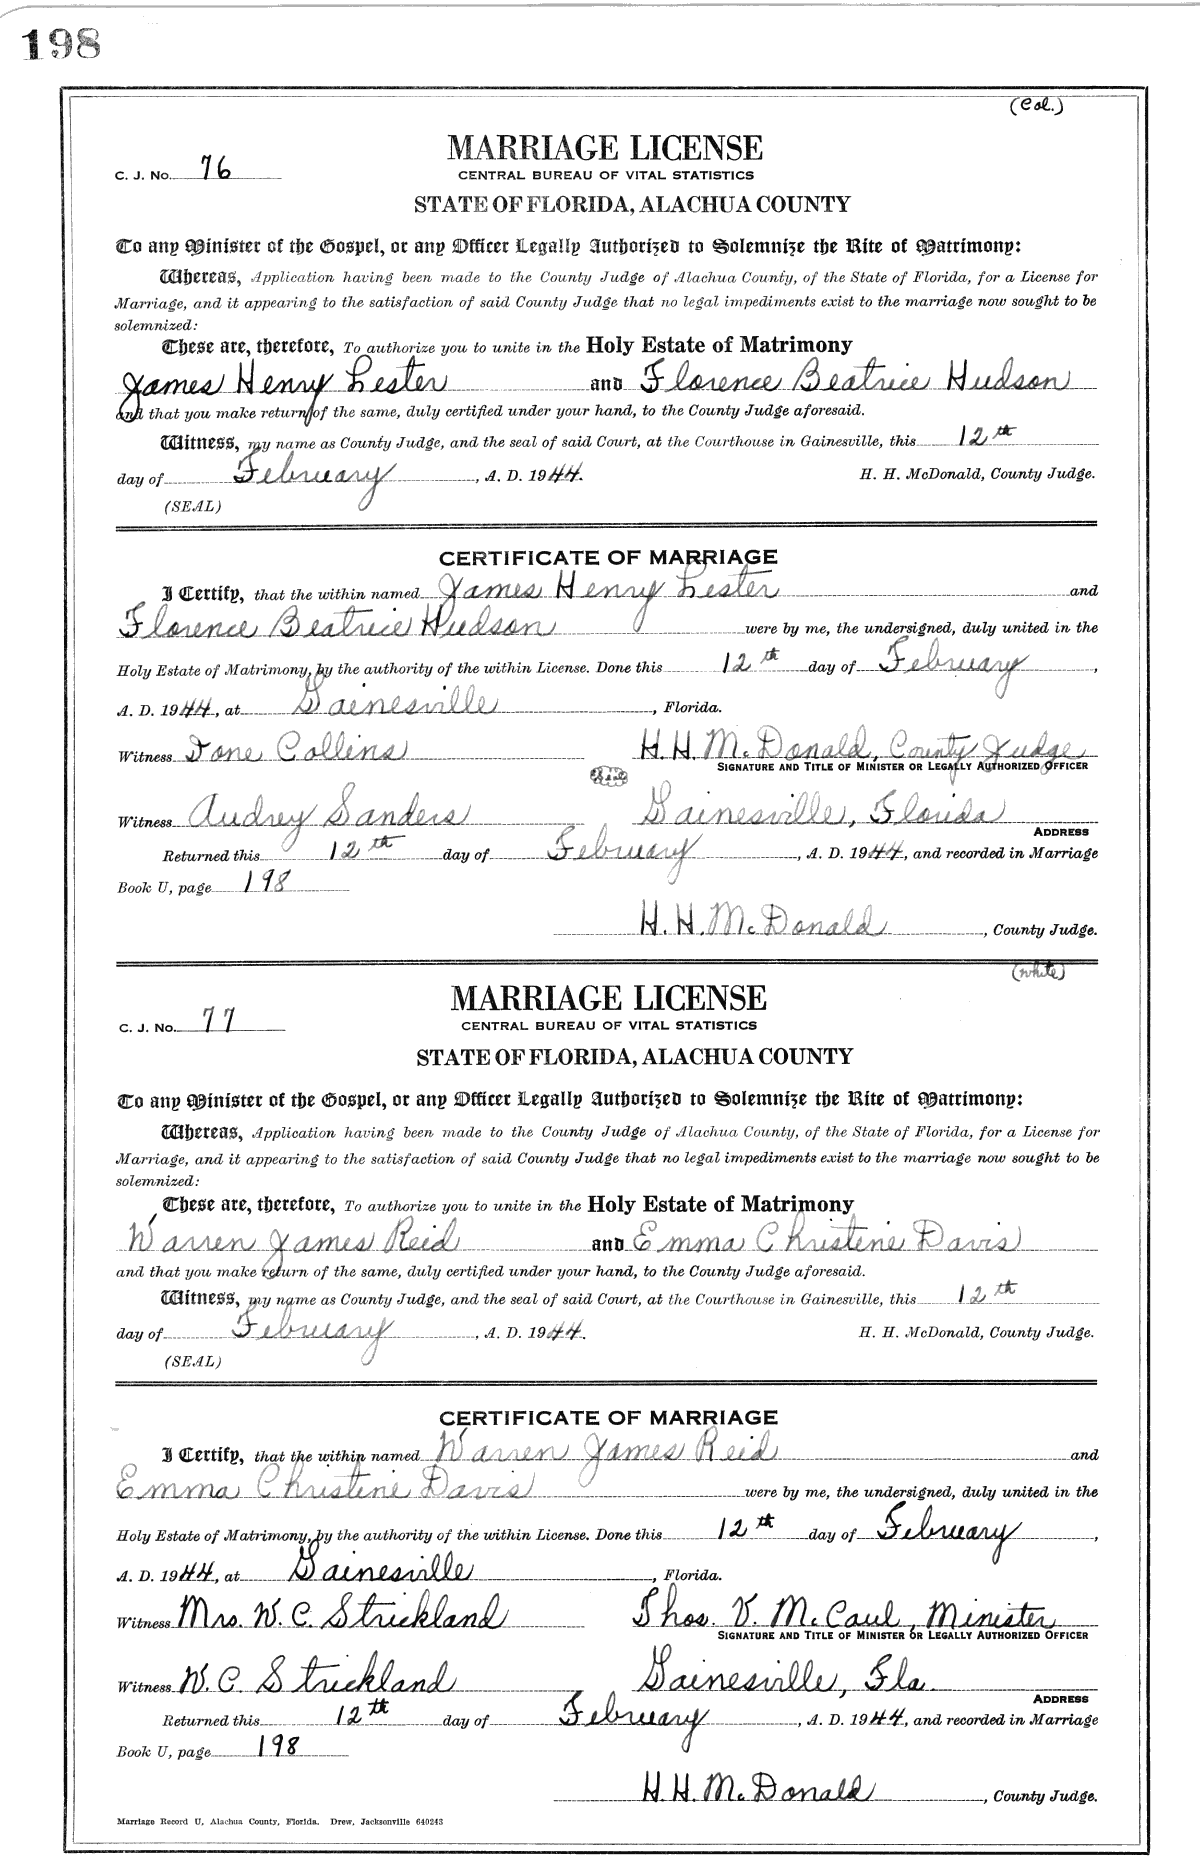 198
(Col.)
MARRIAGE LICENSE
C. J. No. 76
CENTRAL BUREAU OF VITAL STATISTICS
STATE OF FLORIDA, ALACHUA COUNTY
To any Minister of the Gospel, or any Officer Legally Authorized to Solemnize the Rite of Matrimony:
Whereas, Application having been made to the County Judge of Alachua County, of the State of Florida, for a License for
Marriage, and it appearing to the satisfaction of said County Judge that no legal impediments exist to the marriage now sought to be
solemnized:
These are, therefore, To authorize you to unite in the Holy Estate of Matrimony
James Henry Lester and Florence Beatrice Hudson
and that you make return of the same, duly certified under your hand, to the County Judge aforesaid.
Witness, my name as County Judge, and the seal of said Court, at the Courthouse in Gainesville, this 12th
day of February, A. D. 1944. H. H. McDonald, County Judge.
(SEAL)
CERTIFICATE OF MARRIAGE
I Certify, that the within named James Henry Lester and
Florence Beatrice Hudson were by me, the undersigned, duly united in the
Holy Estate of Matrimony, by the authority of the within License. Done this 12th day of February,
A. D. 1944, at Gainesville, Florida.
Witness Ione Collins H. H. McDonald, County Judge
SIGNATURE AND TITLE OF MINISTER OR LEGALLY AUTHORIZED OFFICER
(Seal)
Witness Audrey Sanders Gainesville, Florida
ADDRESS
Returned this 12th day of February, A. D. 1944, and recorded in Marriage
Book U, page 198
H. H. McDonald, County Judge.
(white)
MARRIAGE LICENSE
C. J. No. 77
CENTRAL BUREAU OF VITAL STATISTICS
STATE OF FLORIDA, ALACHUA COUNTY
To any Minister of the Gospel, or any Officer Legally Authorized to Solemnize the Rite of Matrimony:
Whereas, Application having been made to the County Judge of Alachua County, of the State of Florida, for a License for
Marriage, and it appearing to the satisfaction of said County Judge that no legal impediments exist to the marriage now sought to be
solemnized:
These are, therefore, To authorize you to unite in the Holy Estate of Matrimony
Warren James Reid and Emma Christine Davis
and that you make return of the same, duly certified under your hand, to the County Judge aforesaid.
Witness, my name as County Judge, and the seal of said Court, at the Courthouse in Gainesville, this 12th
day of February, A. D. 1944. H. H. McDonald, County Judge.
(SEAL)
CERTIFICATE OF MARRIAGE
I Certify, that the within named Warren James Reid and
Emma Christine Davis were by me, the undersigned, duly united in the
Holy Estate of Matrimony, by the authority of the within License. Done this 12th day of February,
A. D. 1944, at Gainesville, Florida.
Witness Mrs. W. C. Strickland Thos. V. McCaul, Minister
SIGNATURE AND TITLE OF MINISTER OR LEGALLY AUTHORIZED OFFICER
Witness W. C. Strickland Gainesville, Fla.
ADDRESS
Returned this 12th day of February, A. D. 1944, and recorded in Marriage
Book U, page 198
H. H. McDonald, County Judge.
Marriage Record U, Alachua County, Florida. Drew, Jacksonville 640243